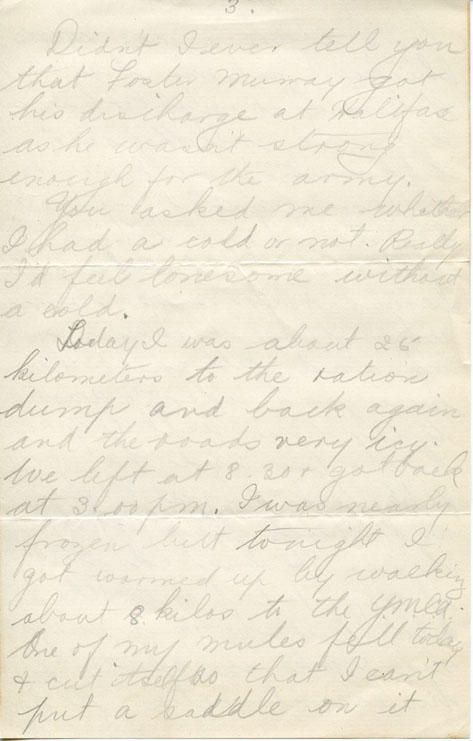 3.
Didn't I ever tell you
that Foster Murray got
his discharge at Halifax
as he wasn't strong
enough for the army.
You asked me whether
I had a cold or not. Really
I'd feel lonesome without
a cold.
Today I was about 25
kilometers to the ration
dump and back again
and the roads very icy.
We left at 8.30 & got back
at 3.00 pm. I was nearly
frozen but tonight I
got warmed up by walking
about 8 kilos to the Y.M.C.A.
One of my mules fell today
& cut itself so that I can't
put a saddle on it